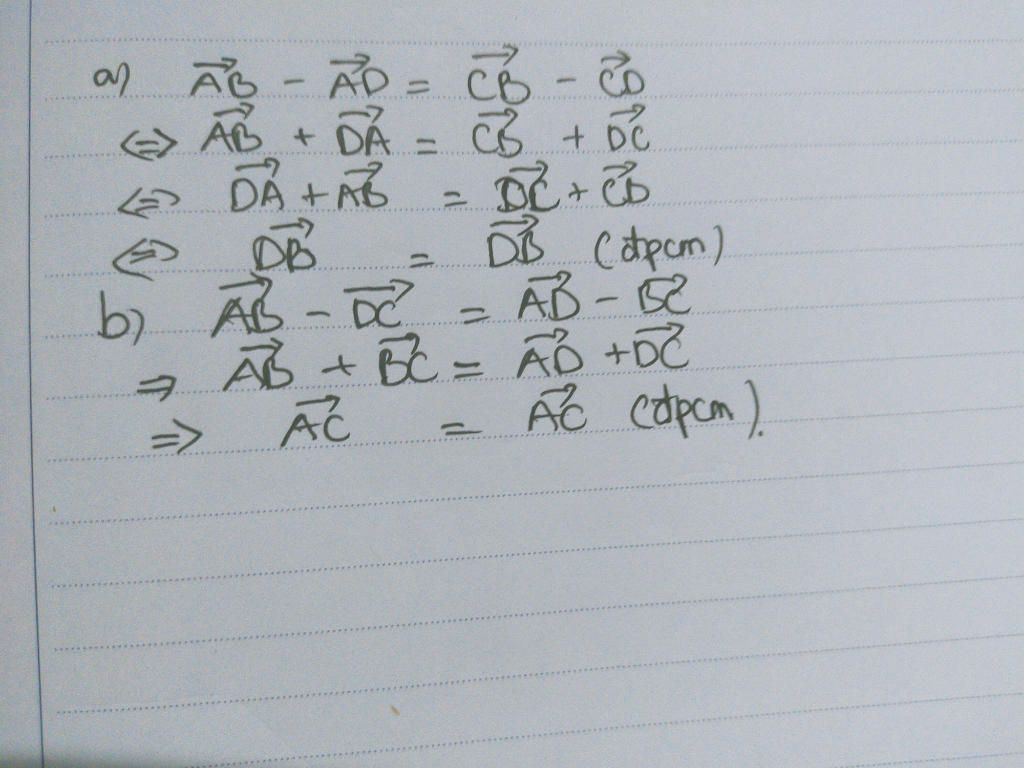 a) $\overrightarrow{AB} - \overrightarrow{AD} = \overrightarrow{CB} - \overrightarrow{CD}$
$\Leftrightarrow \overrightarrow{AB} + \overrightarrow{DA} = \overrightarrow{CB} + \overrightarrow{DC}$
$\Leftrightarrow \overrightarrow{DA} + \overrightarrow{AB} = \overrightarrow{DC} + \overrightarrow{CD}$
$\Leftrightarrow \overrightarrow{DB} = \overrightarrow{DB}$ (đpcm)
b) $\overrightarrow{AB} - \overrightarrow{DC} = \overrightarrow{AD} - \overrightarrow{BC}$
$\Rightarrow \overrightarrow{AB} + \overrightarrow{BC} = \overrightarrow{AD} + \overrightarrow{DC}$
$\Rightarrow \overrightarrow{AC} = \overrightarrow{AC}$ (đpcm).